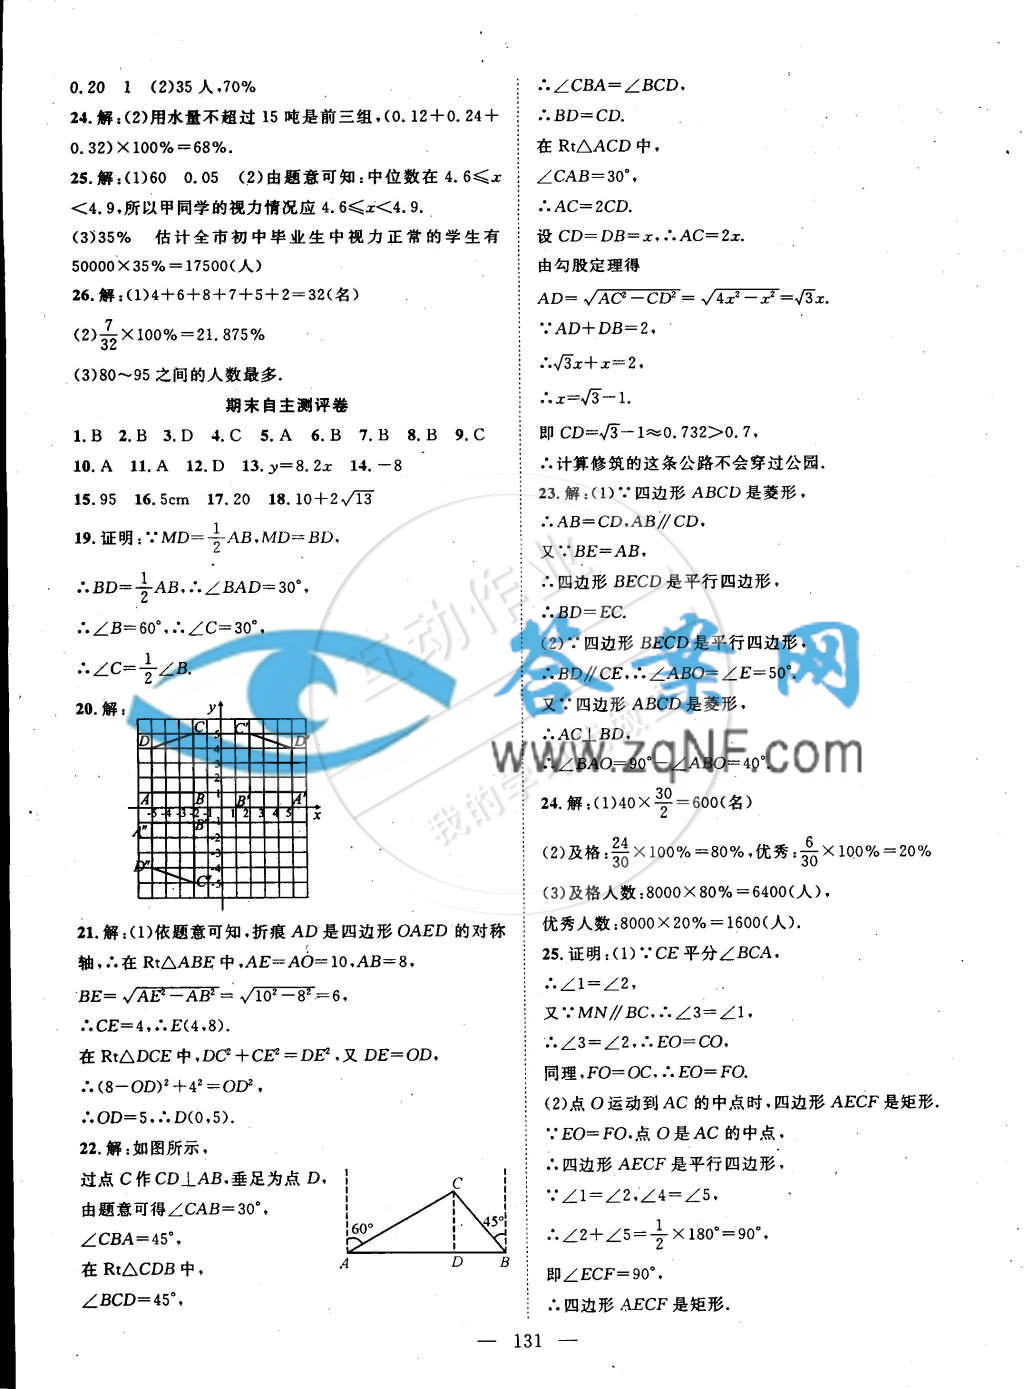 0.20 1 (2)35人,70%
24.解:(2)用水量不超过15吨是前三组,(0.12+0.24+
0.32)×100%=68%.
25.解:(1)60 0.05 (2)由题意可知:中位数在4.6≤x
<4.9,所以甲同学的视力情况应4.6≤x<4.9.
(3)35% 估计全市初中毕业生中视力正常的学生有
50000×35%=17500(人)
26.解:(1)4+6+8+7+5+2=32(名)
(2)7/32×100%=21.875%
(3)80~95之间的人数最多.
期末自主测评卷
1.B 2.B 3.D 4.C 5.A 6.B 7.B 8.B 9.C
10.A 11.A 12.D 13.y=8.2x 14.-8
15.95 16.5cm 17.20 18.10+2√13
19.证明:∵MD=1/2AB,MD=BD,
∴BD=1/2AB,∴∠BAD=30°,
∴∠B=60°,∴∠C=30°,
∴∠C=1/2∠B.
20.解:
y
D C 5 C' D'
4
A B 1 B' A'
-5 -4 -3 -2 -1 1 2 3 4 5 x
A'' B'' -1
-2
-3
D'' -4
C'' -5
21.解:(1)依题意可知,折痕AD是四边形OAED的对称
轴,∴在Rt△ABE中,AE=AO=10,AB=8,
BE=√(AE²-AB²)=√(10²-8²)=6,
∴CE=4,∴E(4,8).
在Rt△DCE中,DC²+CE²=DE²,又DE=OD,
∴(8-OD)²+4²=OD²,
∴OD=5,∴D(0,5).
22.解:如图所示,
过点C作CD⊥AB,垂足为点D,
由题意可得∠CAB=30°,
∠CBA=45°,
在Rt△CDB中,
∠BCD=45°,
C
60° 45°
A D B
∴∠CBA=∠BCD,
∴BD=CD.
在Rt△ACD中,
∠CAB=30°,
∴AC=2CD.
设CD=DB=x,∴AC=2x.
由勾股定理得
AD=√(AC²-CD²)=√(4x²-x²)=√3x.
∵AD+DB=2,
∴√3x+x=2,
∴x=√3-1.
即CD=√3-1≈0.732>0.7,
∴计算修筑的这条公路不会穿过公园.
23.解:(1)∵四边形ABCD是菱形,
∴AB=CD,AB∥CD,
又∵BE=AB,
∴四边形BECD是平行四边形,
∴BD=EC.
(2)∵四边形BECD是平行四边形,
∴BD∥CE,∴∠ABO=∠E=50°.
又∵四边形ABCD是菱形,
∴AC⊥BD,
∴∠BAO=90°-∠ABO=40°.
24.解:(1)40×30/2=600(名)
(2)及格:24/30×100%=80%,优秀:6/30×100%=20%
(3)及格人数:8000×80%=6400(人),
优秀人数:8000×20%=1600(人).
25.证明:(1)∵CE平分∠BCA,
∴∠1=∠2,
又∵MN∥BC,∴∠3=∠1,
∴∠3=∠2,∴EO=CO,
同理,FO=OC,∴EO=FO.
(2)点O运动到AC的中点时,四边形AECF是矩形.
∵EO=FO,点O是AC的中点,
∴四边形AECF是平行四边形,
∵∠1=∠2,∠4=∠5,
∴∠2+∠5=1/2×180°=90°,
即∠ECF=90°,
∴四边形AECF是矩形.
— 131 —
答案网
www.zqNF.com
互动作业